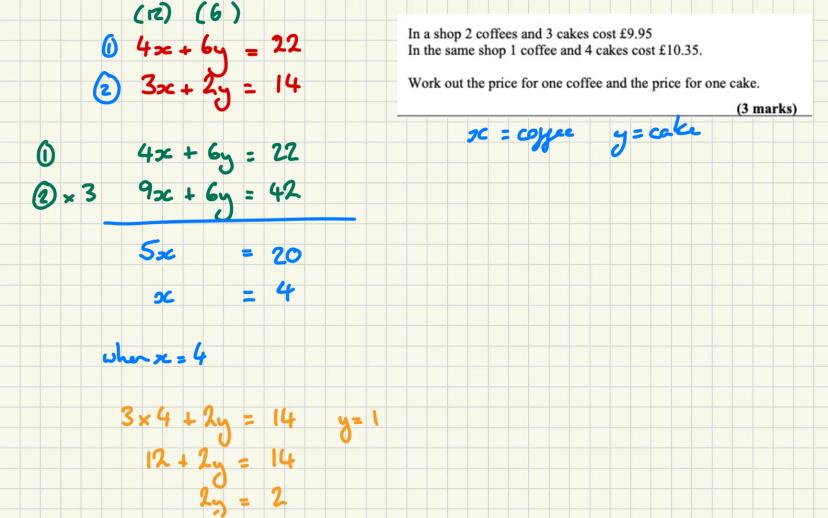 (12) (6)
① 4x + 6y = 22
② 3x + 2y = 14
① 4x + 6y = 22
② × 3 9x + 6y = 42
5x = 20
x = 4
when x = 4
3 × 4 + 2y = 14 y = 1
12 + 2y = 14
2y = 2
In a shop 2 coffees and 3 cakes cost £9.95
In the same shop 1 coffee and 4 cakes cost £10.35.
Work out the price for one coffee and the price for one cake.
(3 marks)
x = coffee y = cake